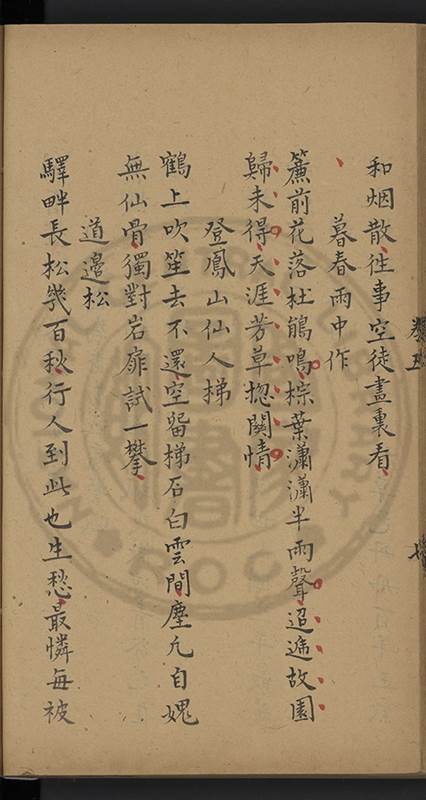 和烟散往事空徒畫裏看
暮春雨中作
簾前花落杜鵑鳴棕葉瀟瀟半雨聲迢遞故園
歸未得天涯芳草揔関情
登鳳山仙人梯
鶴上吹笙去不還空留梯石白雲間塵凡自媿
無仙骨獨對岩扉試一攀
道邊松
驛畔長松幾百秋行人到此也生愁最憐每被